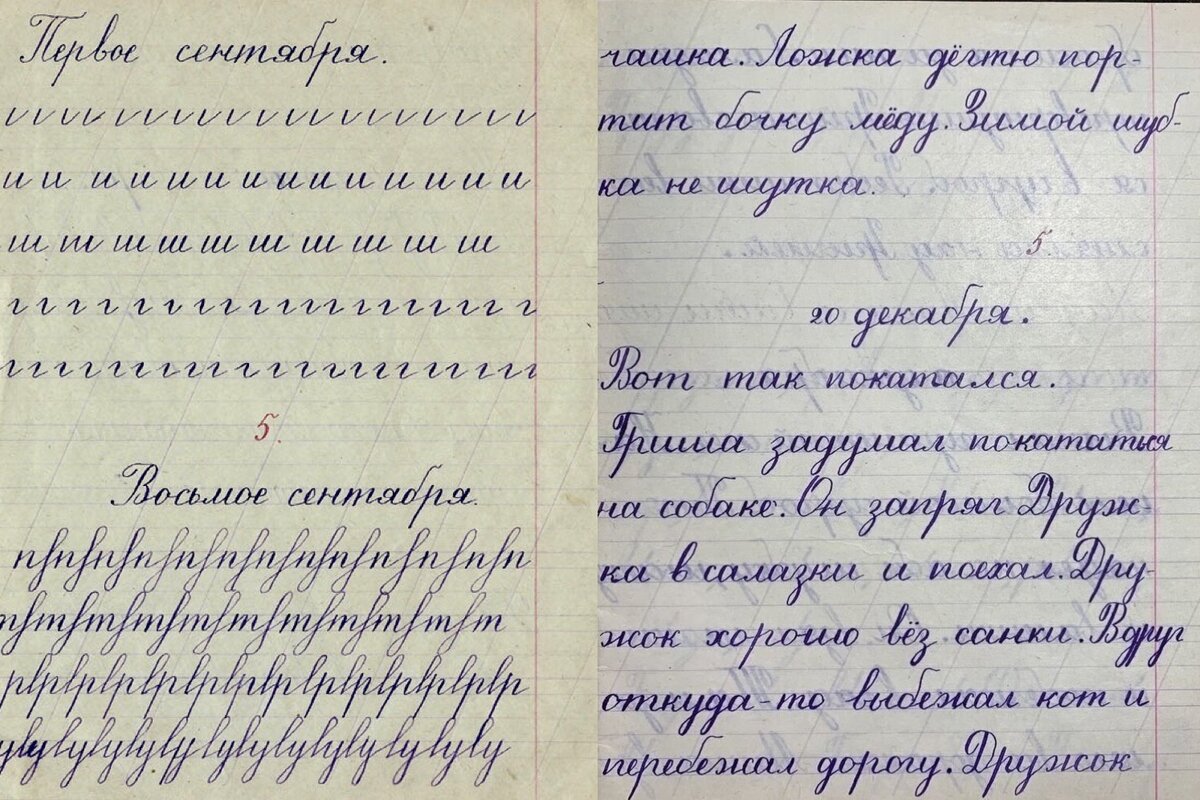 Первое сентября.
и и и и и и и и и и и и и и и и
ш ш ш ш ш ш ш ш ш ш
г г г г г г г г г г г г г г г
5.
Восьмое сентября.
чашка. Ложка дёгтю пор-
тит бочку мёду. Зимой шуб-
ка не шутка.
5.
20 декабря.
Вот так покатался.
Гриша задумал покататься
на собаке. Он запряг Друж-
ка в салазки и поехал. Дру-
жок хорошо вёз санки. Вдруг
откуда-то выбежал кот и
перебежал дорогу. Дружок